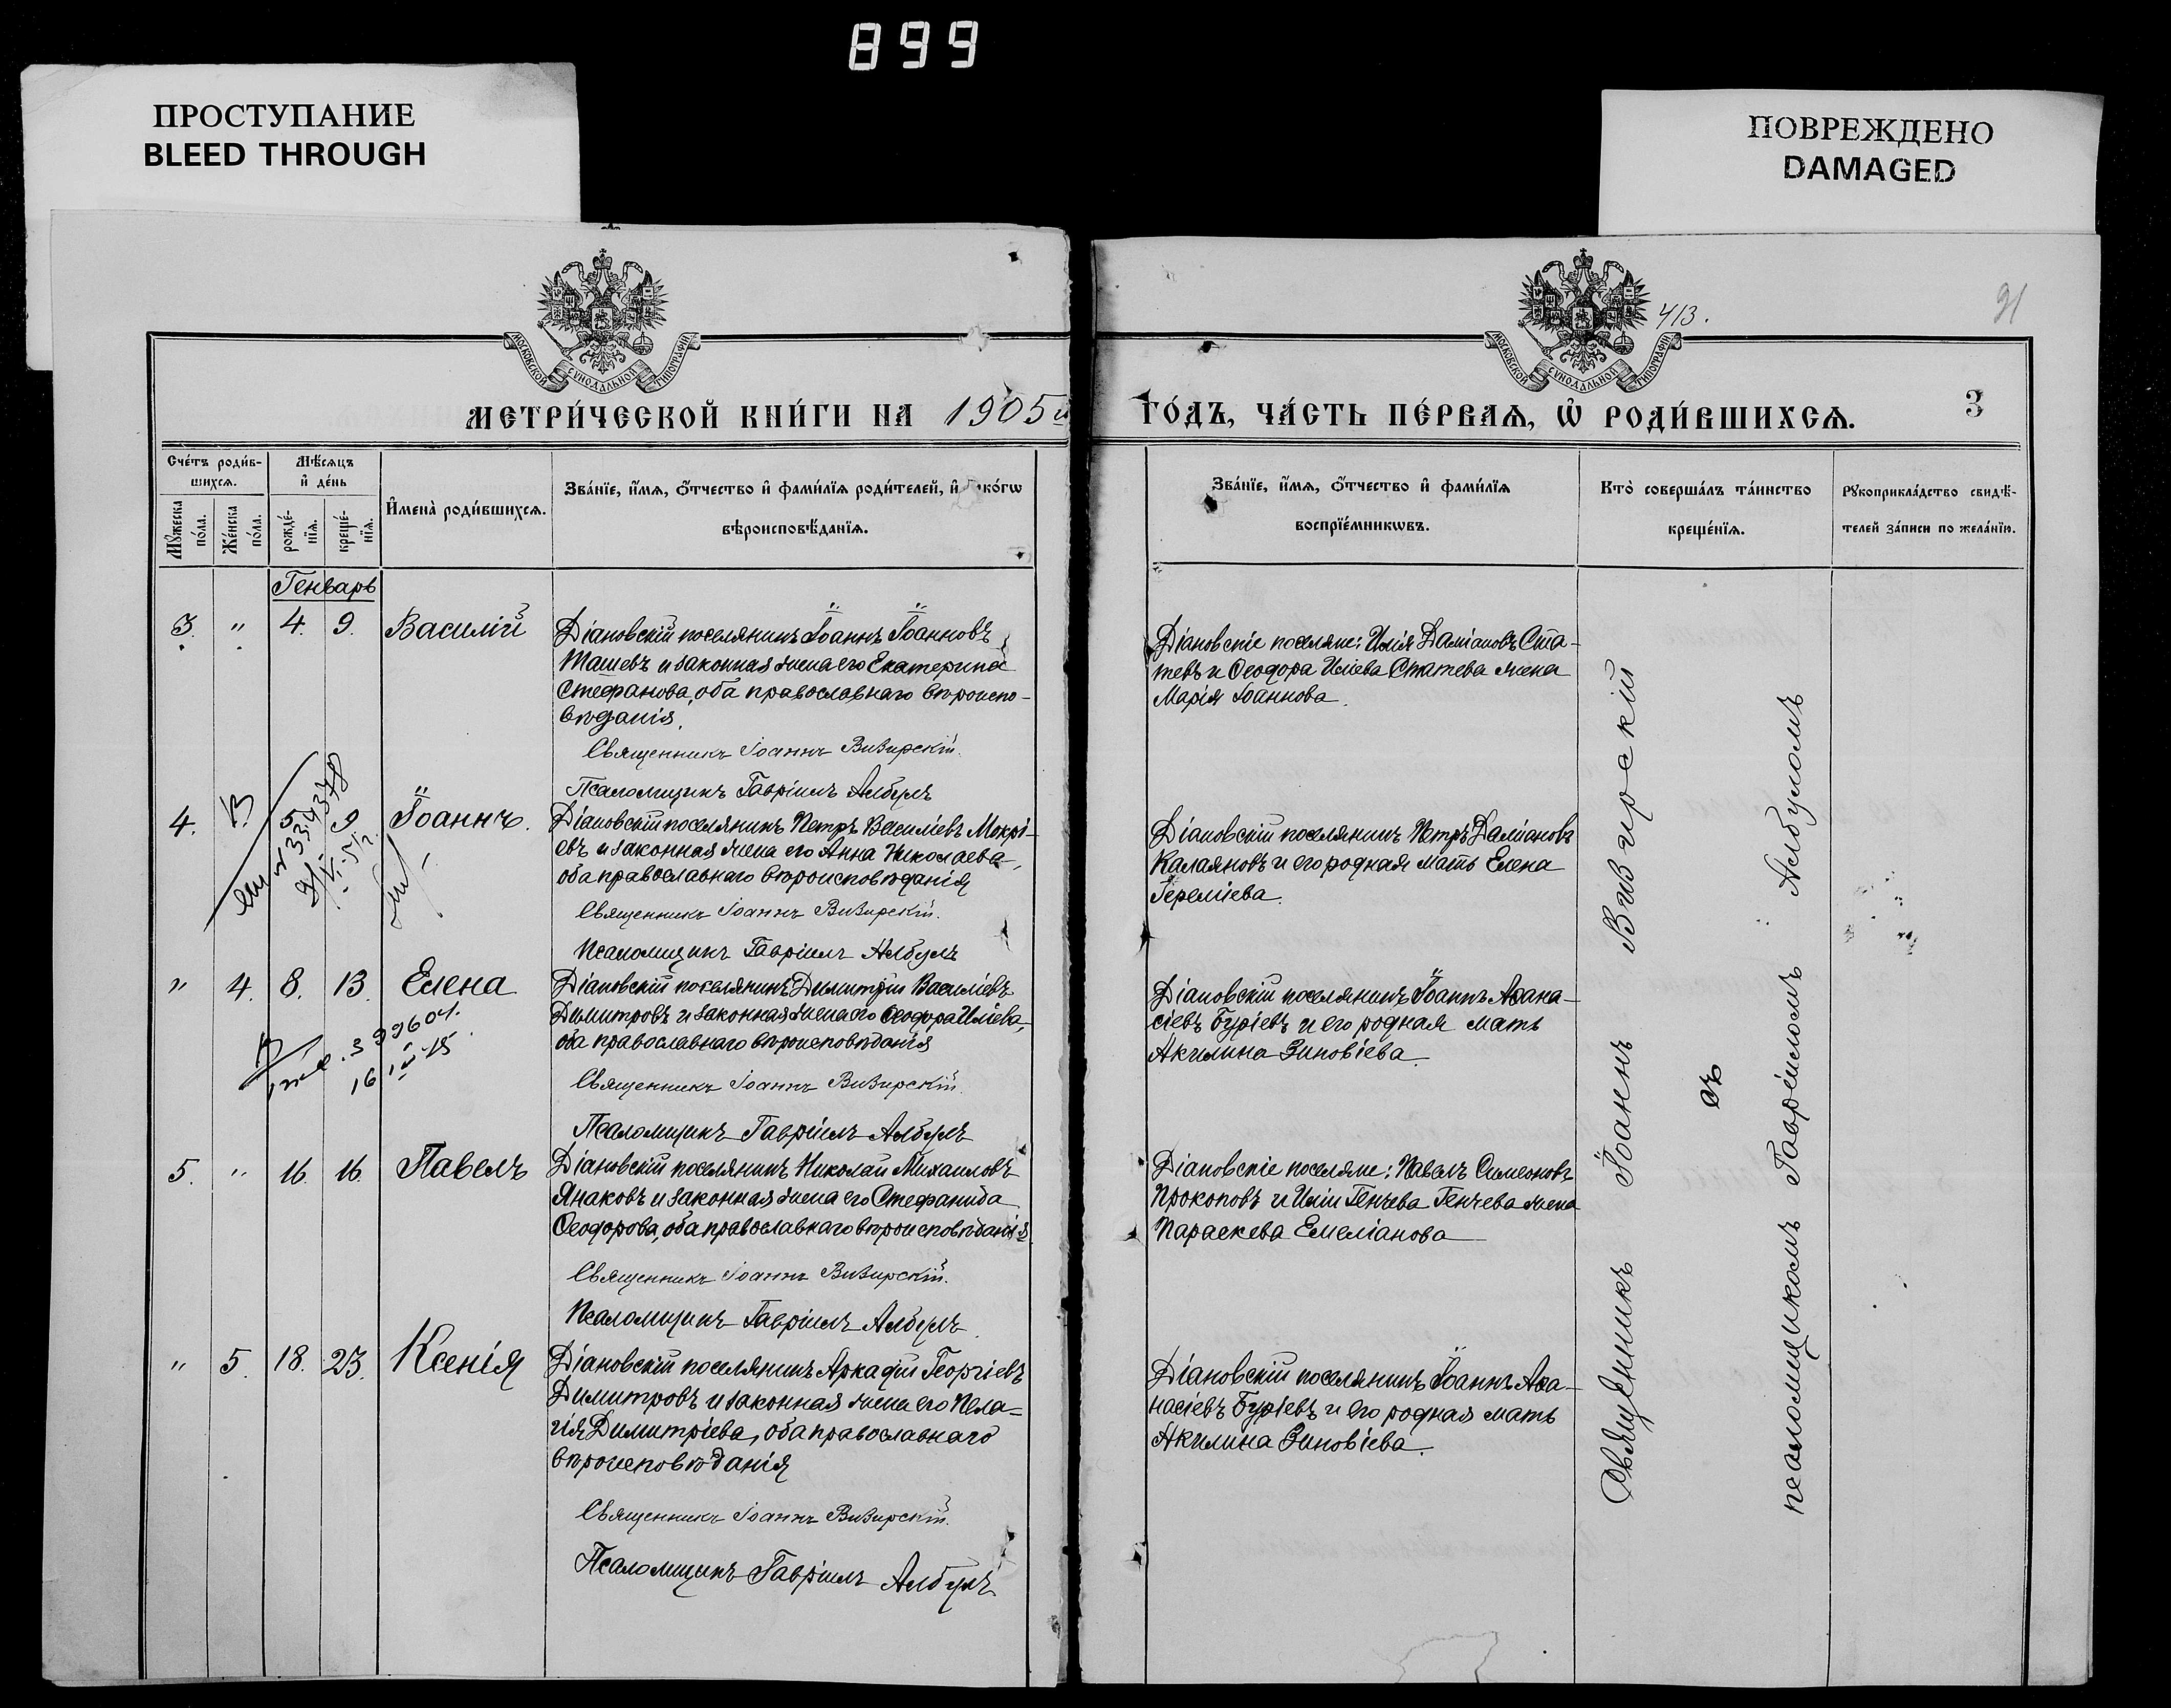 899
ПРОСТУПАНИЕ
BLEED THROUGH
ПОВРЕЖДЕНО
DAMAGED
МОСКОВСКОЙ СУНОДАЛЬНОЙ ТИПОГРАФІИ
МОСКОВСКОЙ СУНОДАЛЬНОЙ ТИПОГРАФІИ
413.
91
МЕТРИ́ЧЕСКОЙ КНИ́ГИ НА 1905й
ГО́ДЪ, ЧА́СТЬ ПЕ́РВАѦ, Ѡ҆ РОДИ́ВШИХСѦ.
3
Сче́тъ роди́в-
шихсѧ.
Мꙋжеска по́ла.
Же́нска по́ла.
Мѣ́сѧцъ
и҆ де́нь
рожде́-
нїѧ.
креще́-
нїѧ.
И҆мена̀ роди́вшихсѧ.
Зва́нїе, и҆́мѧ, ѻ҆́тчество и҆ фами́лїѧ роди́телей, и҆ како́гѡ
вѣроисповѣ́данїѧ.
Зва́нїе, и҆́мѧ, ѻ҆́тчество и҆ фами́лїѧ
воспрїе́мникѡвъ.
Кто̀ соверша́лъ та́инство
креще́нїѧ.
Рꙋкоприкла́дство свидѣ́-
телей за́писи по жела́нїю.
Генварь
3. " 4. 9. Василій
Діановскій поселянинъ Іоаннъ Іоанновъ
Ташевъ и законная жена его Екатерина
Стефанова, оба православнаго вѣроиспо-
вѣданія.
Священникъ Іоаннъ Визирскій.
Псаломщикъ Гавріилъ Албулъ
Діановскіе поселяне: Илія Даміановъ Ста-
тевъ и Ѳеодора Иліева Статева жена
Марія Іоаннова.
4. 5 9 Іоаннъ.
Діановскій поселянинъ Петръ Василіевъ Мокрі-
евъ и законная жена его Анна Николаева,
оба православнаго вѣроисповѣданія
Священникъ Іоаннъ Визирскій.
Псаломщикъ Гавріилъ Албулъ
Діановскій поселянинъ Петръ Даміановъ
Калаяновъ и его родная мать Елена
Іереміева.
" 4. 8. 13. Елена
Діановскій поселянинъ Димитрій Василіевъ
Димитровъ и законная жена его Ѳеодора Иліева,
оба православнаго вѣроисповѣданія
Священникъ Іоаннъ Визирскій.
Псаломщикъ Гавріилъ Албулъ
Діановскій поселянинъ Іоаннъ Аѳана-
сіевъ Буріевъ и его родная мать
Акилина Зиновіева.
5. " 16. 16. Павелъ
Діановскій поселянинъ Николай Михаиловъ
Янаковъ и законная жена его Стефанида
Ѳеодорова, оба православнаго вѣроисповѣданія.
Священникъ Іоаннъ Визирскій.
Псаломщикъ Гавріилъ Албулъ
Діановскіе поселяне: Павелъ Симеоновъ
Прокоповъ и Иліи Генчева Генчева жена
Параскева Емеліанова
" 5. 18. 23. Ксенія
Діановскій поселянинъ Аркадій Георгіевъ
Димитровъ и законная жена его Пела-
гія Димитріева, оба православнаго
вѣроисповѣданія
Священникъ Іоаннъ Визирскій.
Псаломщикъ Гавріилъ Албулъ
Діановскій поселянинъ Іоаннъ Аѳа-
насіевъ Буріевъ и его родная мать
Акилина Зиновіева.
Священникъ Іоаннъ Визирскій
съ
псаломщикомъ Гавріиломъ Албуломъ